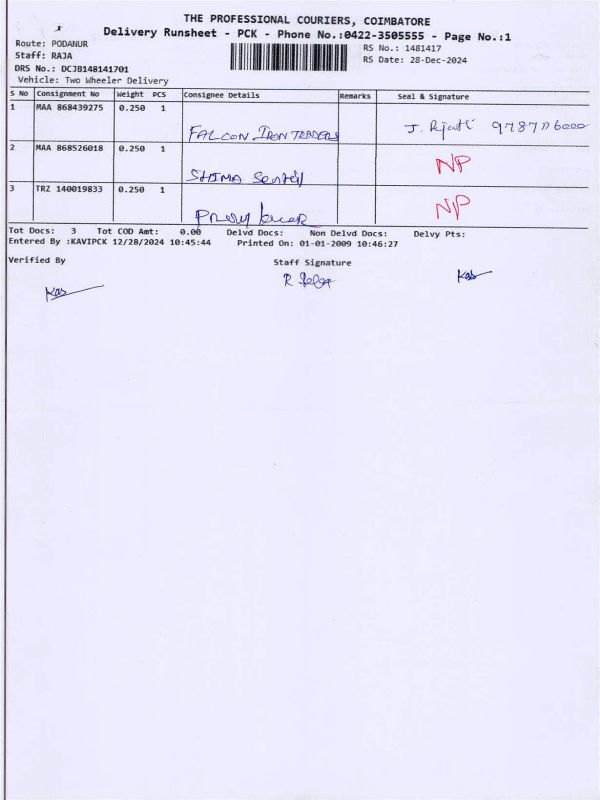 THE PROFESSIONAL COURIERS, COIMBATORE
Delivery Runsheet - PCK - Phone No.:0422-3505555 - Page No.:1
Route: PODANUR
RS No.: 1481417
Staff: RAJA
RS Date: 28-Dec-2024
DRS No.: DCJB148141701
Vehicle: Two Wheeler Delivery
S No Consignment No Weight PCS Consignee Details Remarks Seal & Signature
1 MAA 868439275 0.250 1
FALCON IRON TRADERS J. 9787776000
2 MAA 868526018 0.250 1 NP
SHIMA
3 TRZ 140019833 0.250 1 NP
Tot Docs: 3 Tot COD Amt: 0.00 Delvd Docs: Non Delvd Docs: Delvy Pts:
Entered By :KAVIPCK 12/28/2024 10:45:44 Printed On: 01-01-2009 10:46:27
Verified By Staff Signature